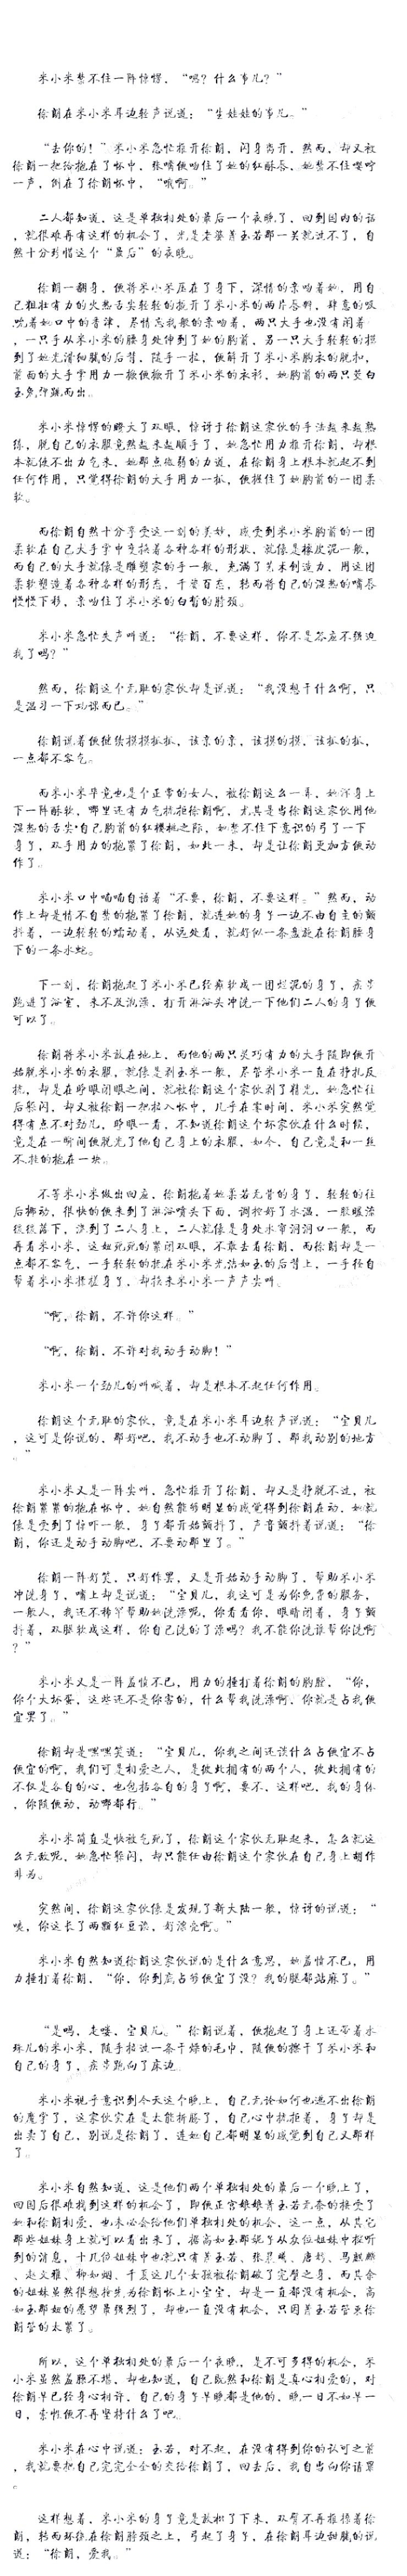 米小米禁不住一阵惊愕，“吗？什么事儿？”
徐朗在米小米耳边轻声说道：“生娃娃的事儿。”
“去你的！”米小米急忙推开徐朗，闪身离开，然而，却又被
徐朗一把给抱在了怀中，张嘴便吻住了她的红酥唇，她禁不住嘤咛
一声，倒在了徐朗怀中，“哦啊。”
二人都知道，这是单独相处的最后一个夜晚了，回到国内的话
，就很难再有这样的机会了，光是老婆菁玉若那一关就过不了，自
然十分珍惜这个“最后”的夜晚。
徐朗一翻身，便将米小米压在了身下，深情的亲吻着她，用自
己粗壮有力的火热舌尖轻轻的挑开了米小米的两片唇瓣，肆意的吸
吮着她口中的香津，尽情忘我般的亲吻着，两只大手也没有闲着
，一只手从米小米的腰身处伸到了她的胸前，另一只大手轻轻的摸
到了她光滑细腻的后背，随手一拉，便解开了米小米胸衣的脱扣，
前面的大手掌用力一掀便掀开了米小米的衣衫，她胸前的两只莹白
玉兔弹跳而出。
米小米惊愕的瞪大了双眼，惊讶于徐朗这家伙的手法越来越熟
练，脱自己的衣服竟然越来越顺手了，她急忙用力推开徐朗，却根
本就使不出力气来，她那点微弱的力道，在徐朗身上根本就起不到
任何作用，只觉得徐朗的大手用力一抓，便握住了她胸前的一团柔
软。
而徐朗自然十分享受这一刻的美妙，感受到米小米胸前的一团
柔软在自己大手掌中变换着各种各样的形状，就像是橡皮泥一般，
而自己的大手就像是雕塑家的手一般，充满了艺术创造力，用这团
柔软塑造着各种各样的形态，千姿百态，转而将自己的湿热的嘴唇
慢慢下移，亲吻住了米小米的白皙的脖颈。
米小米急忙失声叫道：“徐朗，不要这样，你不是答应不强迫
我了吗？”
然而，徐朗这个无耻的家伙却是说道：“我没想干什么啊，只
是温习一下功课而已。”
徐朗说着便继续摸摸抓抓，该亲的亲，该摸的摸，该抓的抓，
一点都不客气。
而米小米毕竟也是个正常的女人，被徐朗这么一弄，她浑身上
下一阵酥软，哪里还有力气抗拒徐朗啊，尤其是当徐朗这家伙用他
湿热的舌尖·自己胸前的红樱桃之际，她禁不住下意识的弓了一下
身子，双手用力的抱紧了徐朗，如此一来，却是让徐朗更加方便动
作了。
米小米口中喃喃自语着“不要，徐朗，不要这样。”然而，动
作上却是情不自禁的抱紧了徐朗，就连她的身子一边不由自主的颤
抖着，一边轻轻的蠕动着，从远处看，就好似一条盘旋在徐朗腰身
下的一条水蛇。
下一刻，徐朗抱起了米小米已经瘫软成一团烂泥的身子，疾步
跑进了浴室，来不及泡澡，打开淋浴头冲洗一下他们二人的身子便
可以了。
徐朗将米小米放在地上，而他的两只灵巧有力的大手随即便开
始脱米小米的衣服，就像是剥玉米一般，尽管米小米一直在挣扎反
抗，却是在睁眼闭眼之间，就被徐朗这个家伙剥了精光，她急忙往
后躲闪，却又被徐朗一把拉入怀中，几乎在霎时间，米小米突然觉
得有点不对劲儿，睁眼一看，不知道徐朗这个坏家伙在什么时候，
竟是在一瞬间便脱光了他自己身上的衣服，如今，自己竟是和一丝
不挂的抱在一块。
不等米小米做出回应，徐朗抱着她柔若无骨的身子，轻轻的往
后挪动，很快的便来到了淋浴喷头下面，调控好了水温，一股暖流
缓缓落下，浇到了二人身上，二人就像是身处水帘洞洞口一般，而
再看米小米，这妞死死的紧闭双眼，不敢去看徐朗，而徐朗却是一
点都不客气，一手轻轻的抚在米小米光洁如玉的后背上，一手径自
帮着米小米搓搓身子，却换来米小米一声声尖叫。
“啊，徐朗，不许你这样。”
“啊，徐朗，不许对我动手动脚！”
米小米一个劲儿的叫喊着，却是根本不起任何作用。
徐朗这个无耻的家伙，竟是在米小米耳边轻声说道：“宝贝儿
，这可是你说的，那好吧，我不动手也不动脚了，那我动别的地方
。”
米小米又是一阵尖叫，急忙推开了徐朗，却又是挣脱不过，被
徐朗紧紧的抱在怀中，她自然能够明显的感觉得到徐朗在动，她就
像是受到了惊吓一般，身子都开始颤抖了，声音颤抖着说道：“徐
朗，你还是动手动脚吧，不要动那里了。”
徐朗一阵好笑，只好作罢，又是开始动手动脚了，帮助米小米
冲洗身子，嘴上却是说道：“宝贝儿，我这可是为你免费的服务，
一般人，我还不稀罕帮助她洗澡呢，你看看你，眼睛闭着，身子颤
抖着，双腿软成这样，你自己洗的了澡吗？我不能你洗谁帮你洗啊
？”
米小米又是一阵羞愤不已，用力的捶打着徐朗的胸膛，“你，
你个大坏蛋，这些还不是你害的，什么帮我洗澡啊，你就是占我便
宜罢了。”
徐朗却是嘿嘿笑道：“宝贝儿，你我之间还谈什么占便宜不占
便宜的啊，我们可是相爱之人，是彼此拥有的两个人，彼此拥有的
不仅是各自的心，也包括各自的身子啊，要不，这样吧，我的身体
，你随便动，动哪都行。”
米小米简直是快被气死了，徐朗这个家伙无耻起来，怎么就这
么无敌呢，她急忙躲闪，却只能任由徐朗这个家伙在自己身上胡作
非为。
突然间，徐朗这家伙像是发现了新大陆一般，惊讶的说道：“
咦，你这长了两颗红豆诶，好漂亮啊。”
米小米自然知道徐朗这家伙说的是什么意思，她羞愤不已，用
力捶打着徐朗，“你，你到底占够便宜了没？我的腿都站麻了。”
“是吗，走喽，宝贝儿。”徐朗说着，便抱起了身上还带着水
珠儿的米小米，随手拈过一条干燥的毛巾，随便的擦干了米小米和
自己的身子，疾步跑向了床边。
米小米视乎意识到今天这个晚上，自己无论如何也逃不出徐朗
的魔掌了，这家伙实在是太能折腾了，自己心中抗拒着，身子却是
出卖了自己，别说是徐朗了，连她自己都明显的感觉到自己又那样
了。
米小米自然知道，这是他们两个单独相处的最后一个晚上了，
回国后很难找到这样的机会了，即使正宫娘娘菁玉若无奈的接受了
她和徐朗相爱，也未必会给他们单独相处的机会，这一点，从其它
那些姐妹身上就可以看出来了，据高如玉那妮子从众位姐妹中探听
到的消息，十几位姐妹中也就只有菁玉若、张晨曦、唐韵、马麒麟
、赵文雅、柳如烟、千夏这几个女孩被徐朗破了完璧之身，而其余
的姐妹虽然很想抢先为徐朗怀上小宝宝，却是一直都没有机会，高
如玉那妞的愿望最强烈了，却也一直没有机会，只因菁玉若管束徐
朗管的太紧了。
所以，这个单独相处的最后一个夜晚，是不可多得的机会，米
小米虽然羞臊不堪，却也知道，自己既然和徐朗是真心相爱的，对
徐朗早已经身心相许，自己的身子早晚都是他的，晚一日不如早一
日，索性便不再坚持什么了吧。
米小米在心中说道：玉若，对不起，在没有得到你的认可之前
，我就要把自己完完全全的交给徐朗了，回去后，我自当向你请罪
。
这样想着，米小米的身子竟是放松了下来，双臂不再推搡着徐
朗，转而环绕在徐朗脖颈之上，弓起了身子，在徐朗耳边甜腻的说
道：“徐朗，爱我。”